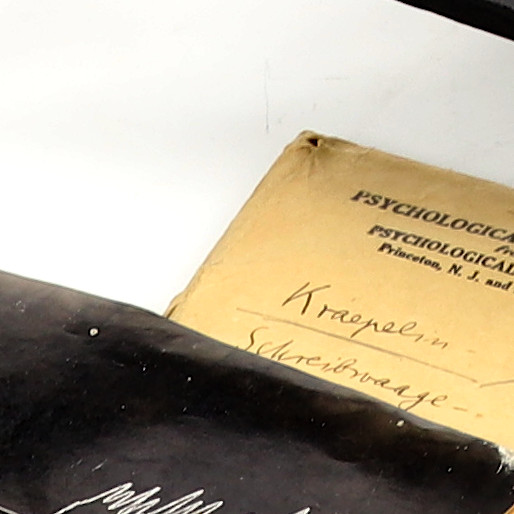 PSYCHOLOGICA
PSYCHOLOGICAL
Princeton, N. J. and
Kraepelin
Schreibwaage-